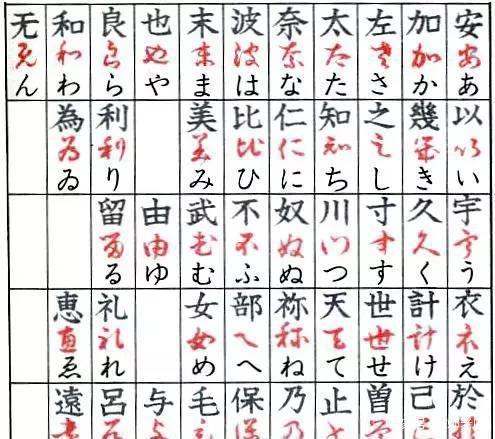 安安あ 以以い 宇宇う 衣衣え 於
加加か 幾幾き 久久く 計計け 己
左左さ 之之し 寸寸す 世世せ 曽
太太た 知知ち 川川つ 天天て 止
奈奈な 仁仁に 奴奴ぬ 祢祢ね 乃
波波は 比比ひ 不不ふ 部へへ 保
末末ま 美美み 武武む 女女め 毛
也也や 由由ゆ 与
良良ら 利利り 留留る 礼礼れ 呂
和和わ 為為ゐ 恵恵ゑ 遠
无无ん